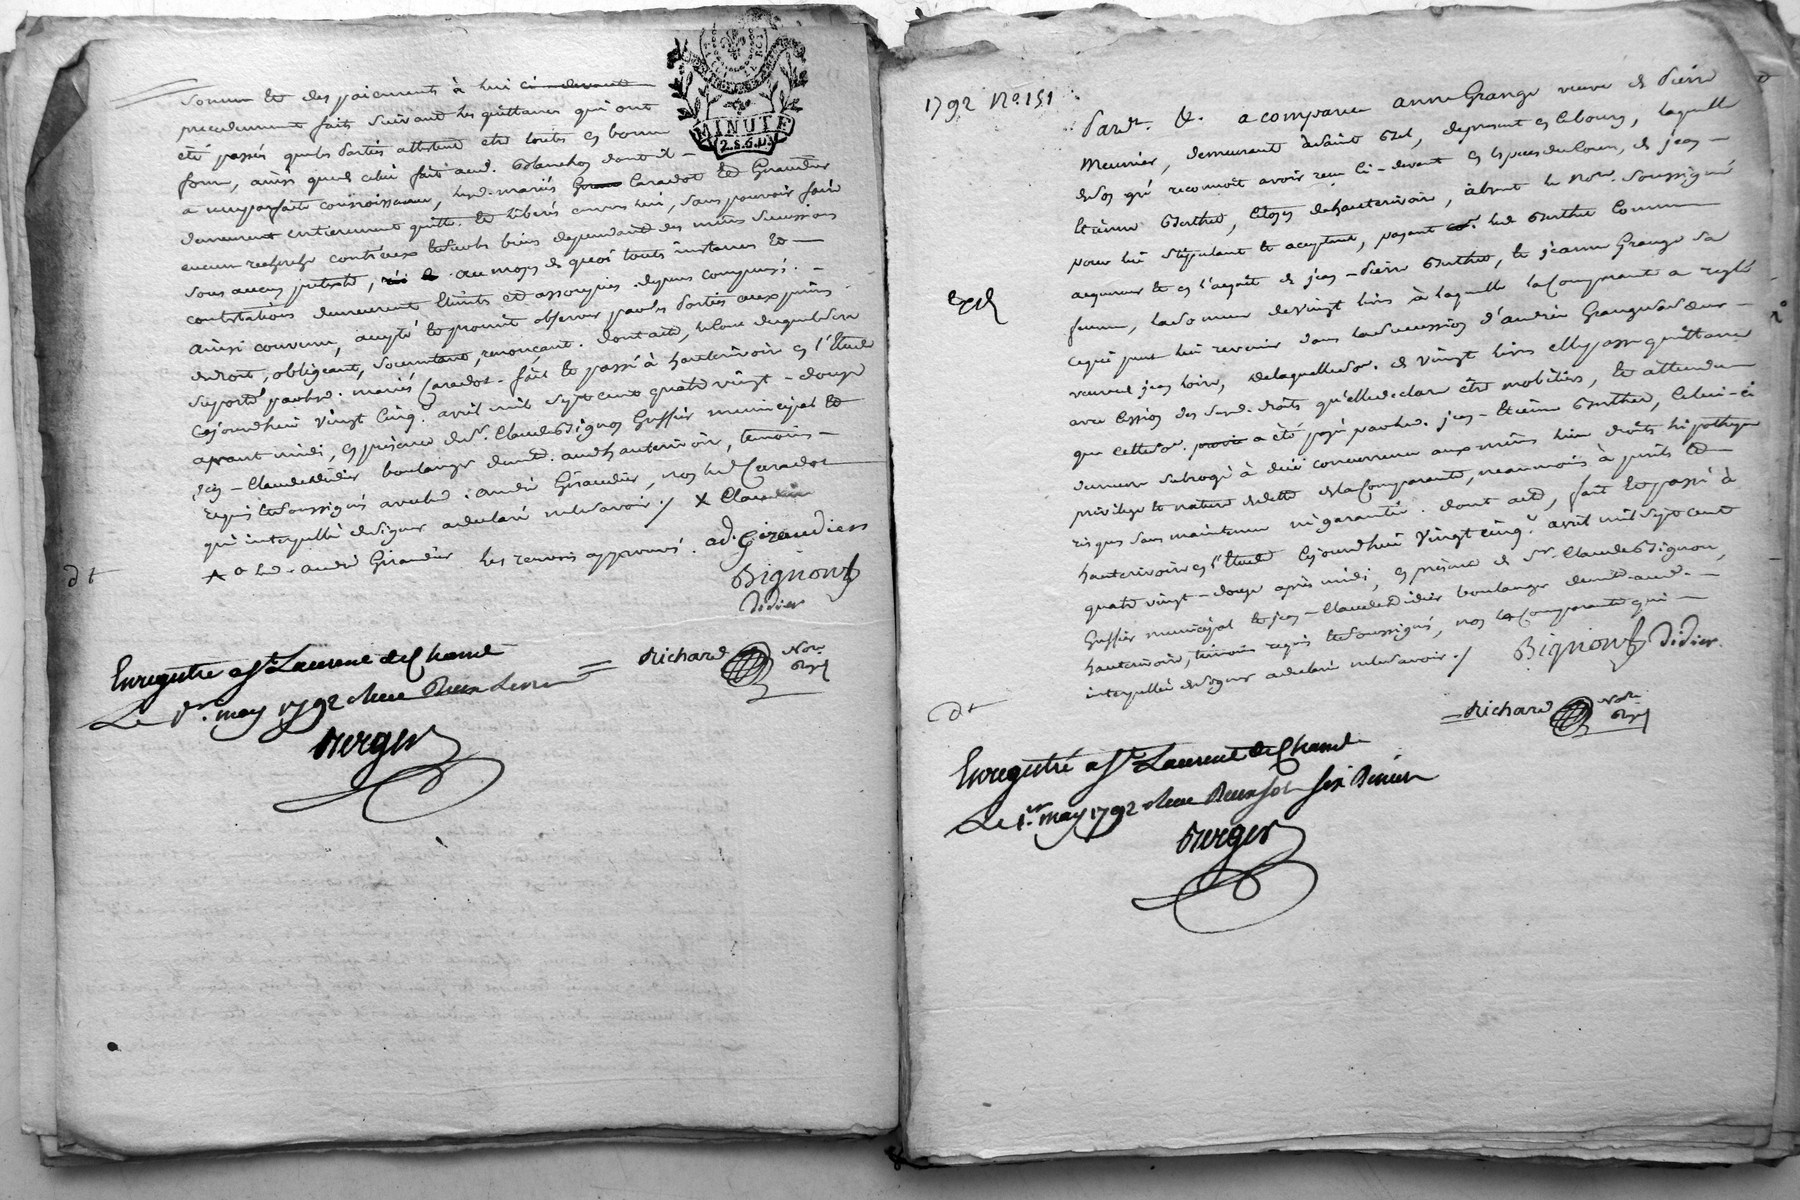 somme et des paiements à lui ci-devant
précédemment faits suivant les quittances qui ont
été passés que les parties attestent etre toutes en bonne
forme, ainsi que celui fait aud. Blanchon dont il
a une parfaite connoissance, lesd. mariés Caradot et Giraudier
demeurent entierement quitte et liberés envers lui, sans pouvoir faire
aucune recherche contr'eux et leurs biens dependant des mêmes successions
sous aucun pretexte, au moyen de quoi toutes instances et
contestations demeurent éteintes et assoupies depens compensés.
ainsi convenu, accepté et promit observer par les parties aux peines
de droit, obligeant, soumettant, renonçant. dont acte,
mariés Caradot. fait et passé à hauterivoire en l'étude
cejourdhui vingt cinq avril mil sept cent quatre vingt-douze
avant midi, en présence de sr. Claude Bignon Greffier municipal et
jean-Claude Didier boulanger demt. aud. hauterivoire, temoins
requis et soussignés avec led. andré Giraudier, non lad. Caradot
qui interpellée de signer a declaré ne le savoir ./ X Claudine
X a led. andré Giraudier les renvois approuvés. ad. Geraudier
MINUTE
2.s.6.d
dt
Bignon
Didier
Enregistré a St Laurent de Chamt
Richard Nore
Le 1er. may 1792 Reçu
Verger
1792 No. 151
Pardt. &. a comparu anne Grange veuve de Pierre
Meunier, demeurant à Saint, de present en ce bourg, laquelle
de son gré reconnoît avoir reçu ci-devant en especes de cours, de jean-
Etienne Berthet, Citoyen de hauterivoire, absent le Nore. soussigné
pour lui stipulant et acceptant, payant led. Berthet comme
acquereur et en l'acquit de jean-Pierre Berthet, et jeanne Grange sa
femme, la somme de vingt livres à laquelle la Comparante a reglé
Exp
ce qui peut lui revenir dans la succession d'andrée Grange sa sœur
veuve de jean, de laquelle some. de vingt livres elle passe quittance
avec cession des susd. droits qu'elle declare être mobiliers, et attendu
que cette some. a été payé par led. jean-Etienne Berthet, Celui-ci
demeure subrogé à due concurrence aux mêmes lieu droits hipotheque
privilege et nature de dette de la Comparante, neanmoins à perils et
risques sans maintenue ni garantie. dont acte, fait et passé à
hauterivoire en l'étude Cejourdhui vingt cinq avril mil sept cent
quatre vingt-douze après midi, en présence de sr. Claude Bignon,
Greffier municipal et jean-Claude Didier boulanger demt. aud.
hauterivoire, temoins requis et soussignés, non la Comparante qui
interpellée de signer a declaré ne le savoir ./ Bignon Didier
dt
Richard Nore
Enregistré a St Laurent de Chamt
Le 1er. may 1792 Reçu Deux sols six Deniers
Verger